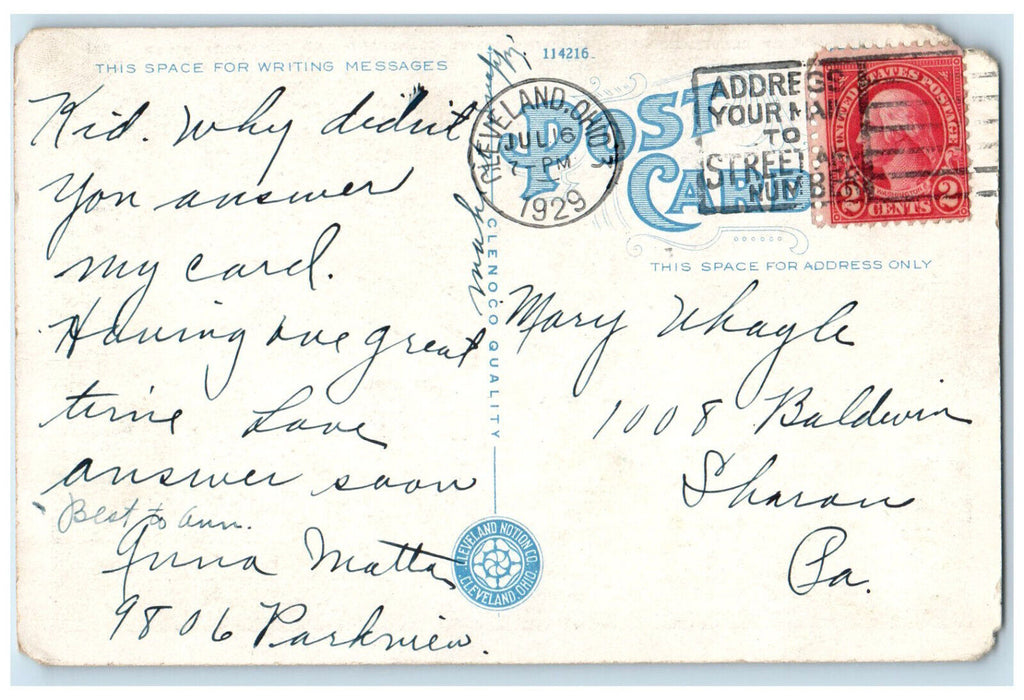 THIS SPACE FOR WRITING MESSAGES
Kid. Why didn't
you answer
my card.
Having one great
time Love
answer soon
Best to Ann.
Anna Matta
9806 Parkview.
114216-
POST
CARD
CLEVELAND, OHIO 3
JUL 16
7 - PM
1929
ADDRESS
YOUR MAIL
TO
STREET AND
NUMBER
UNITED STATES POSTAGE
2 CENTS 2
THIS SPACE FOR ADDRESS ONLY
CLENOCO QUALITY
CLEVELAND NOTION CO.
CLEVELAND, OHIO.
Mary
1008 Baldwin
Sharon
Pa.